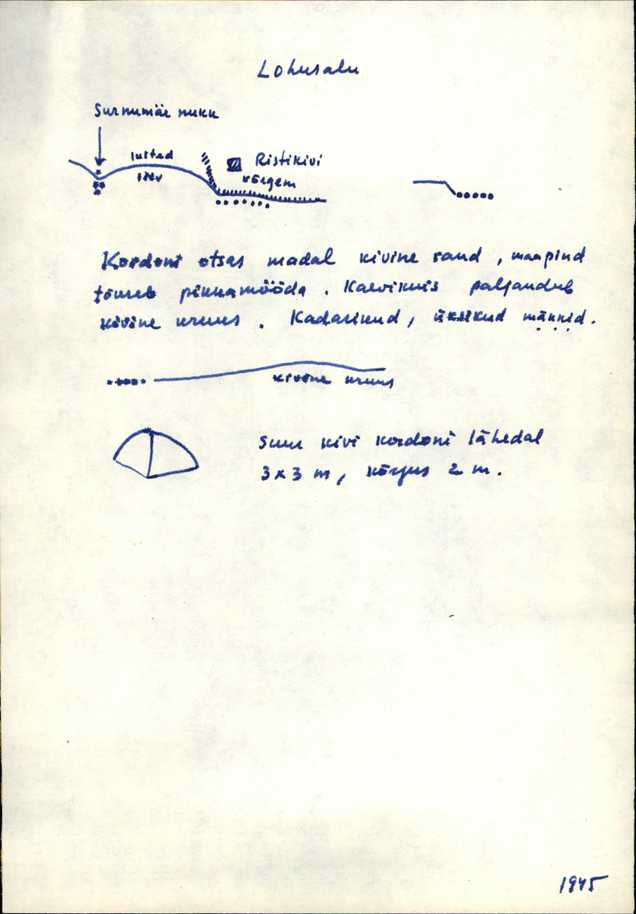 Lohusalu
Surnumäe nukk
luited
Ristikivi
kõrgem
Kordoni otsas madal kivine rand, maapind
tõuseb pikkamööda. Kaevikuis paljandub
kivine uruus. Kadarikud, üksikud männid.
kivine uruus
Suur kivi kordoni lähedal
3x3 m, kõrgus 2 m.
1945